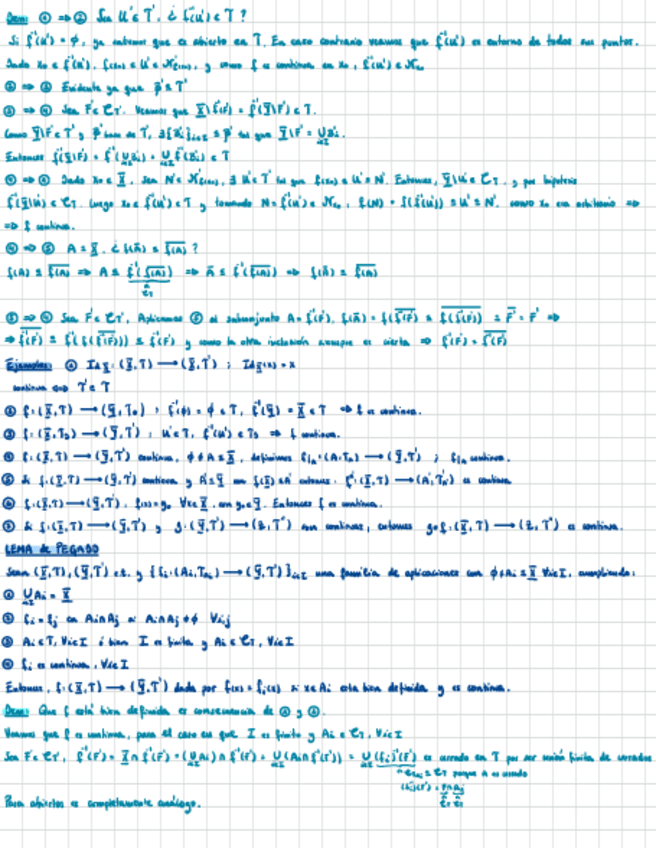 Dem: ① ⇒ ② Sea U'∈T', ¿ f⁻¹(U') ∈ T ?
Si f⁻¹(U') = ∅, ya sabemos que es abierto en T. En caso contrario veamos que f⁻¹(U') es entorno de todos sus puntos.
Dado x₀ ∈ f⁻¹(U'), f(x₀) ∈ U' ∈ N'f(x₀), y como f es continua en x₀, f⁻¹(U') ∈ Nx₀
② ⇒ ③ Evidente ya que β' ⊆ T'
③ ⇒ ④ Sea F'∈ C_T'. Veamos que X\f⁻¹(F') = f⁻¹(Y\F') ∈ T.
Como Y\F' ∈ T' y β' base de T', ∃{Bi}i∈I ⊆ β' tal que Y\F' = ∪i∈I Bi.
Entonces f⁻¹(Y\F') = f⁻¹(∪i∈I Bi) = ∪i∈I f⁻¹(Bi) ∈ T
④ ⇒ ① Dado x₀ ∈ X, sea N' ∈ N'f(x₀), ∃ U' ∈ T' tal que f(x₀) ∈ U' ⊆ N'. Entonces, Y\U' ∈ C_T', y por hipótesis
f⁻¹(Y\U') ∈ C_T. Luego x₀ ∈ f⁻¹(U') ∈ T y tomando N = f⁻¹(U') ∈ Nx₀, f(N) = f(f⁻¹(U')) ⊆ U' ⊆ N'. como x₀ era arbitrario ⇒
⇒ f continua.
④ ⇒ ⑤ A ⊆ X. ¿ f(Ā) ⊆ \overline{f(A)} ?
f(A) ⊆ \overline{f(A)} ⇒ A ⊆ f⁻¹(\overline{f(A)}) ⇒ Ā ⊆ f⁻¹(\overline{f(A)}) ⇒ f(Ā) ⊆ \overline{f(A)}
∈ C_T
⑤ ⇒ ④ Sea F'∈ C_T', Aplicamos ⑤ al subconjunto A = f⁻¹(F'). f(Ā) = f(\overline{f⁻¹(F')}) ⊆ \overline{f(f⁻¹(F'))} ⊆ \overline{F'} = F' ⇒
⇒ \overline{f⁻¹(F')} ⊆ f⁻¹(f(\overline{f⁻¹(F')})) ⊆ f⁻¹(F') y como la otra inclusión siempre es cierta ⇒ f⁻¹(F') = \overline{f⁻¹(F')}
Ejemplos: ① Id_X : (X,T) ⟶ (X,T') ; Id_X(x) = x
continua ⟺ T' ⊆ T
② f : (X,T) ⟶ (Y,T₀) ; f⁻¹(∅) = ∅ ∈ T, f⁻¹(Y) = X ∈ T ⇒ f es continua.
③ f : (X,T_D) ⟶ (Y,T') ; U' ∈ T', f⁻¹(U') ∈ T_D ⇒ f continua.
④ f : (X,T) ⟶ (Y,T') continua, ∅ ≠ A ⊆ X, definimos f|A : (A,T_A) ⟶ (Y,T') ; f|A continua.
⑤ Si f : (X,T) ⟶ (Y,T') continua y A' ⊆ Y con f(X) ⊆ A' entonces f : (X,T) ⟶ (A',T'A') es continua
⑥ f : (X,T) ⟶ (Y,T'), f(x) = y₀ ∀x∈X, con y₀ ∈ Y. Entonces f es continua.
⑦ Si f : (X,T) ⟶ (Y,T') y g : (Y,T') ⟶ (Z,T'') son continuas, entonces g∘f : (X,T) ⟶ (Z,T'') es continua.
LEMA de PEGADO
Sean (X,T), (Y,T') e.t. y {fi : (Ai,T_Ai) ⟶ (Y,T')}i∈I una familia de aplicaciones con ∅ ≠ Ai ⊆ X ∀i∈I, cumpliendo:
① ∪i∈I Ai = X
② fi = fj en Ai∩Aj si Ai∩Aj ≠ ∅ ∀i,j
③ Ai ∈ T, ∀i∈I ó bien I es finita y Ai ∈ C_T, ∀i∈I
④ fi es continua, ∀i∈I
Entonces, f : (X,T) ⟶ (Y,T') dada por f(x) = fi(x) si x∈Ai está bien definida y es continua.
Dem: Que f está bien definida es consecuencia de ① y ②.
Veamos que f es continua, para el caso en que I es finito y Ai ∈ C_T, ∀i∈I
Sea F'∈ C_T', f⁻¹(F') = X ∩ f⁻¹(F') = (∪i∈I Ai) ∩ f⁻¹(F') = ∪i∈I (Ai ∩ f⁻¹(F')) = ∪i∈I (fi)⁻¹(F') es cerrado en T por ser unión finita de cerrados
∈ C_T_Ai ⊆ C_T porque A es cerrado
Para abiertos es completamente análogo.